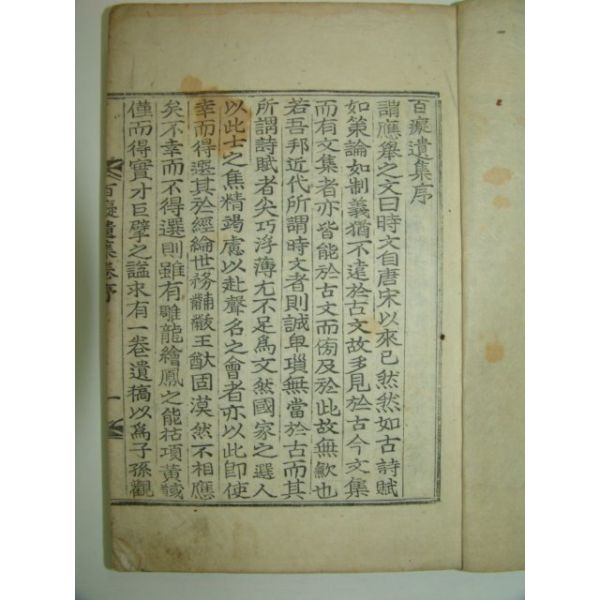 百癡遺集序
謂應擧之文曰時文自唐宋以來已然然如古詩賦
如策論如制義猶不遠於古文故多見於古今文集
而有文集者亦皆能於古文而傍及於此故無歉也
若吾邦近代所謂時文者則誠卑瑣無當於古而其
所謂詩賦者尖巧浮薄尤不足爲文然國家之選人
以此士之焦精竭慮以赴聲名之會者亦以此即使
幸而得選其於經綸世務黼黻王猷固漠然不相應
矣不幸而不得選則雖有雕龍繪鳳之能枯項黃馘
僅而得實才巨擘之謚求有一卷遺稿以爲子孫觀
百癡遺集卷序
一